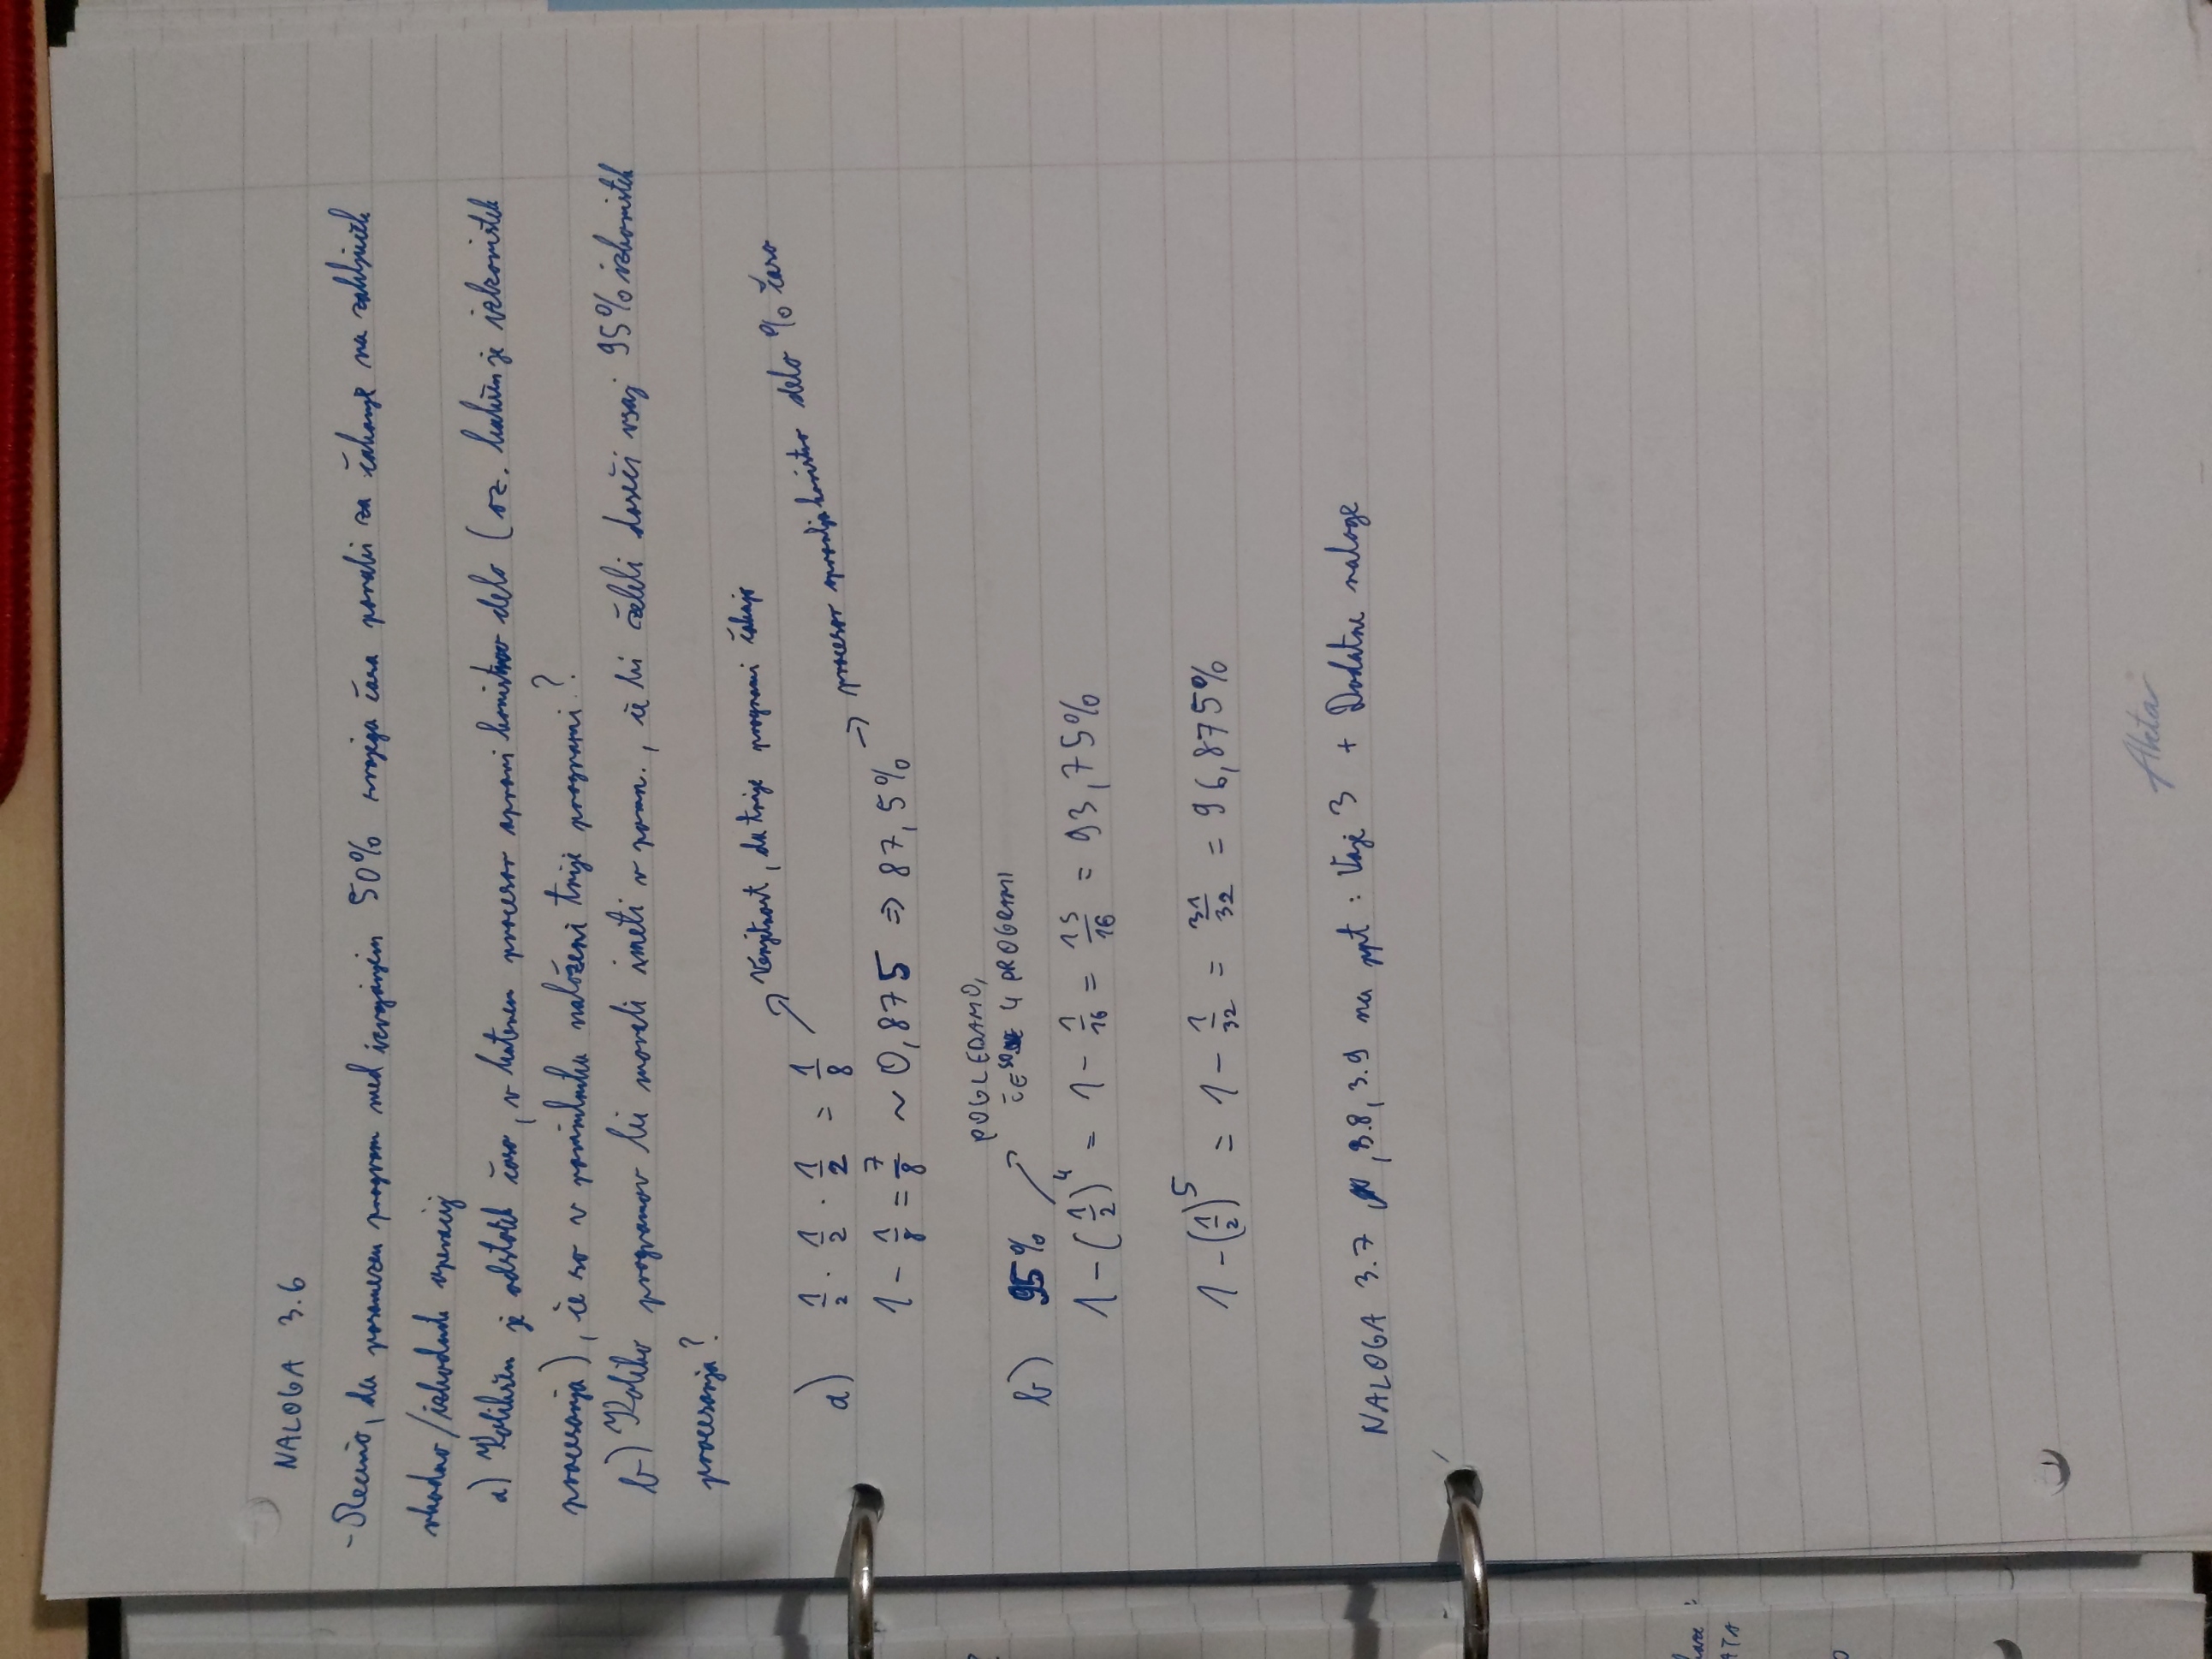 NALOGA 3.6
- Recimo, da posamezen program med izvajanjem 50% svojega časa porabi za čakanje na zaključek
vhodno/izhodnih operacij
a) Kolikšen je odstotek časa, v katerem procesor opravi koristno delo (oz. kakšen je izkoristek
procesanja), če so v pomnilniku naloženi trije programi?
b) Koliko programov bi morali imeti v pomn., če bi želeli doseči vsaj 95% izkoristek
procesanja?
a) 1/2 · 1/2 · 1/2 = 1/8 → Verjetnost, da trije programi čakajo
1 - 1/8 = 7/8 ~ 0,875 ⇒ 87,5% → procesor opravlja koristno delo % časa
b) 95%
POGLEDAMO,
ČE SO 4 PROGRAMI
1 - (1/2)^4 = 1 - 1/16 = 15/16 = 93,75%
1 - (1/2)^5 = 1 - 1/32 = 31/32 = 96,875%
NALOGA 3.7, 3.8, 3.9 na ppt : Vaje 3 + Dodatne naloge
ATA
Akta